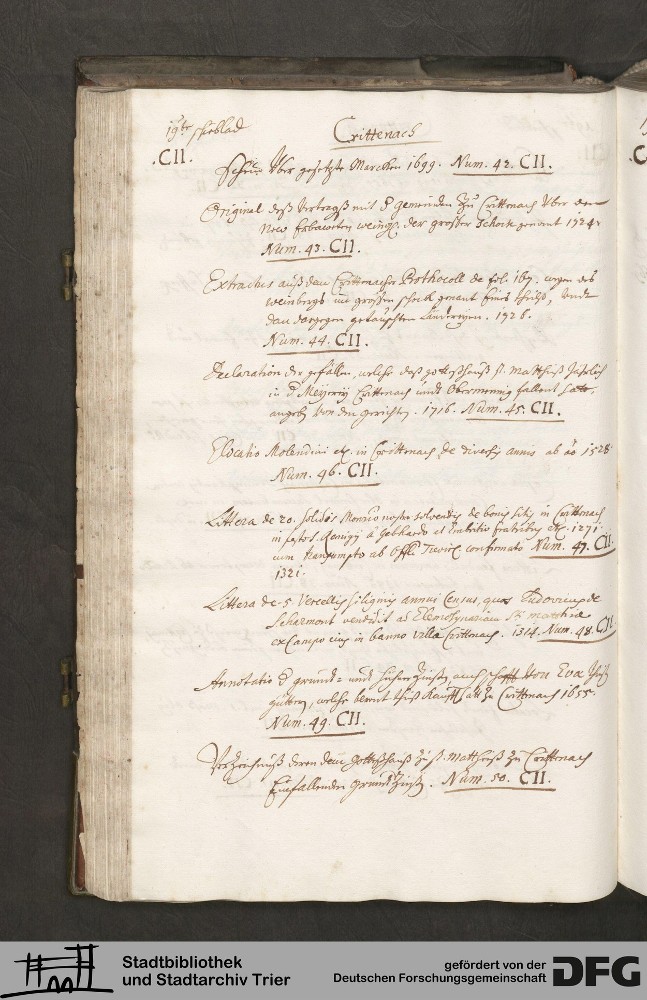 19te schublad
Crittenach
.CII.
Schein über gesetzte Marcken 1699. Num. 42. CII.
Original deß Vertragß mit d gemeinden zu Crittenach über den
New Erbawten weing. der großer Schock genant 1724.
Num. 43. CII.
Extractus auß dem Crittenacher Prothocoll de fol. 167. wegen des
weinbergs im großen schock genant
dan dargegen getauschten Ländereyen. 1726.
Num. 44. CII.
Declaration der gefällen, welche daß gotteßhauß st. Matheiß Jährlich
in d Meyerey Crittenach undt Obermennig fallent hatt,
angeb. von den gerichten. 1716. Num. 45. CII.
Elocatio Molendini etc. in Crittenach de diversis annis ab ao 1528
Num. 46. CII.
Littera de 20. solidis Monrio nostro solvendis de bonis sitis in Crittenach
in festo s. Remigij a Gobhardo et fratribus etc. 1271.
cum transumpto ab Offli Trevir. confirmato Num. 47. CII.
1321.
Littera de 5 Vercellis siliginis annui Census, quos Ludovicus de
Scharmont vendidit ad Elemosynariam St. Matthiae
ex Campo eius in banno villae Crittenach. 1314. Num. 48. CII.
Annotatio d grund- und
gütter, welche Crittenach 1655.
Num. 49. CII.
Verzeichnuß deren dem gotteßhauß zu st. Mattheiß zu Crittenach
Einfallenden grundt Zinß. Num. 50. CII.
Stadtbibliothek
und Stadtarchiv Trier
gefördert von der
Deutschen Forschungsgemeinschaft
DFG